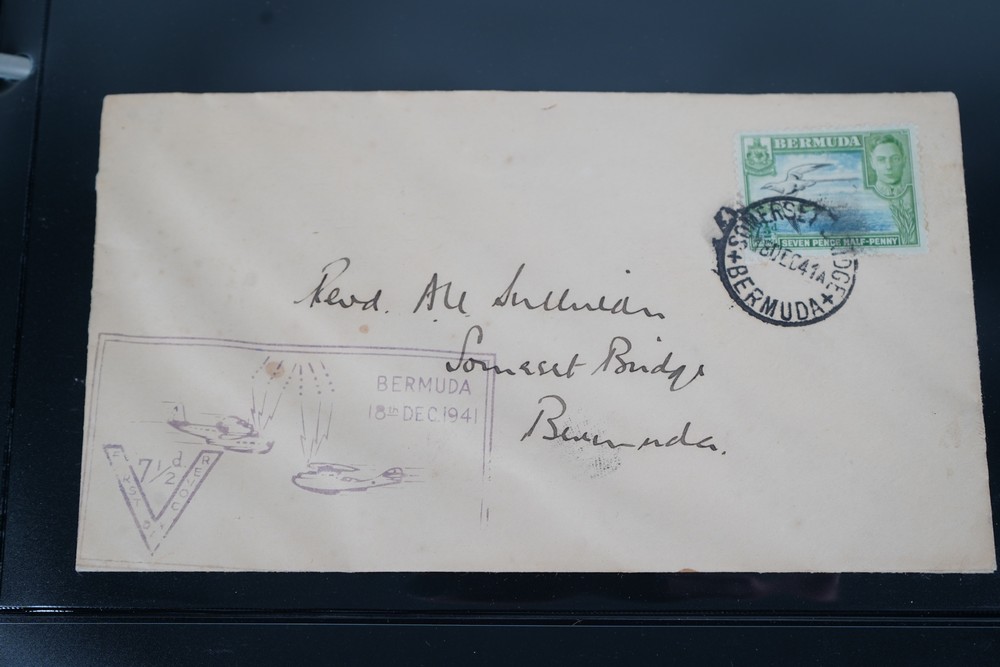 BERMUDA
SEVEN PENCE HALF-PENNY
SOMERSET BRIDGE
18 DEC 41 A
+ BERMUDA +
Revd. A.W. Sullivan
Somerset Bridge
Bermuda.
BERMUDA
18th DEC. 1941
7 1/2 d
FIRST DAY COVER